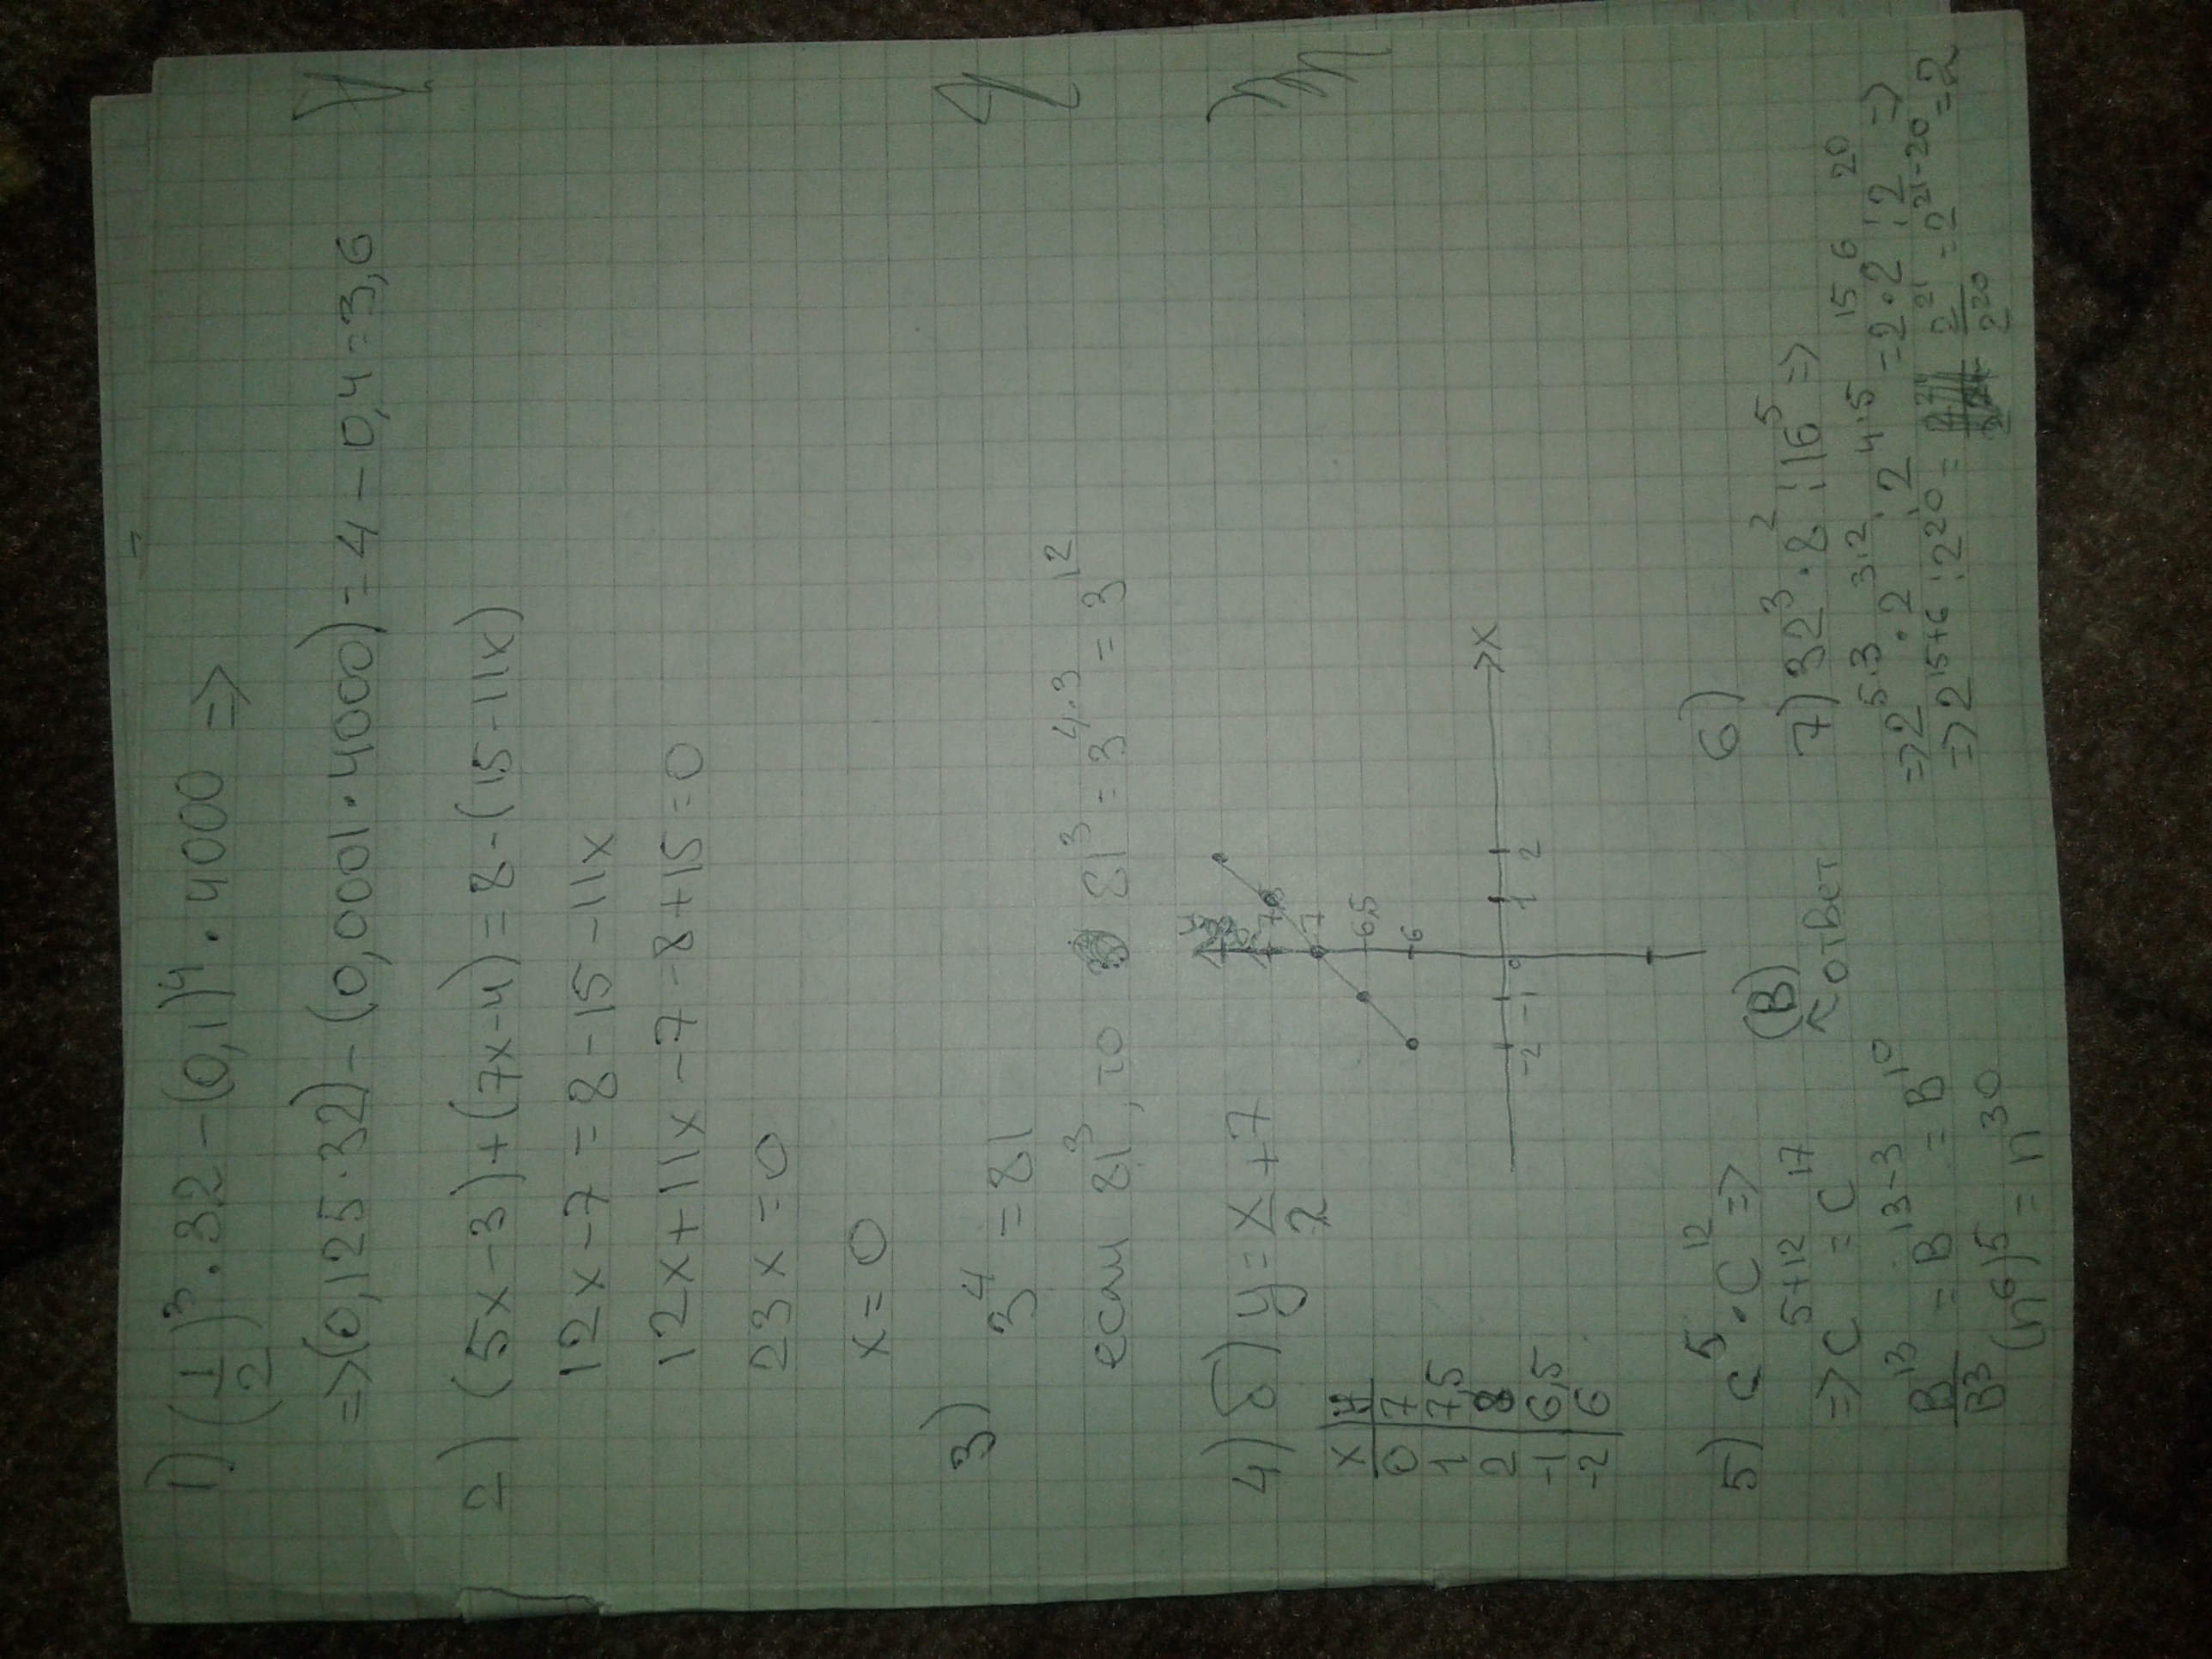 1) (1/2)³ · 32 - (0,1)⁴ · 4000 =>
=> (0,125 · 32) - (0,0001 · 4000) = 4 - 0,4 = 3,6
2) (5x - 3) + (7x - 4) = 8 - (15 - 11x)
12x - 7 = 8 - 15 - 11x
12x + 11x - 7 - 8 + 15 = 0
23x = 0
x = 0
3) 3⁴ = 81
если 81³, то 81³ = 3⁴·³ = 3¹²
4) б) y = x/2 + 7
x | y
0 | 7
1 | 7,5
2 | 8
-1 | 6,5
-2 | 6
7
6,5
6
-2 -1 0 1 2
x
5) c⁵ · C¹² =>
=> C⁵⁺¹² = C¹⁷
B¹³/B³ = B¹³⁻³ = B¹⁰
(n⁶)⁵ = n³⁰
(В)
ответ
6)
7) 32³ · 8² : 16⁵ =>
=> 2⁵·³ · 2³·² : 2⁴·⁵ = 2¹⁵ · 2⁶ : 2²⁰ =>
=> 2¹⁵⁺⁶ : 2²⁰ = 2²¹/2²⁰ = 2²¹⁻²⁰ = 2